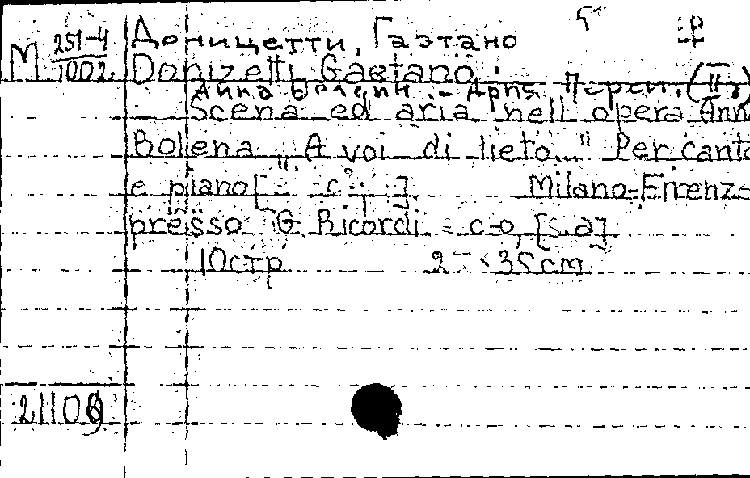 М 251-4/1002
Доницетти, Гаэтано
Donizetti Gaetano.
Анна Болейн. - Ария Перси. (II д
Scena ed aria nell opera Ann
Bolena „A voi di lieto..." Per canto
e piano [ c. ] Milano-Firenz-
presso G. Ricordi - c-o, [s.a]
10 стр 35 cm